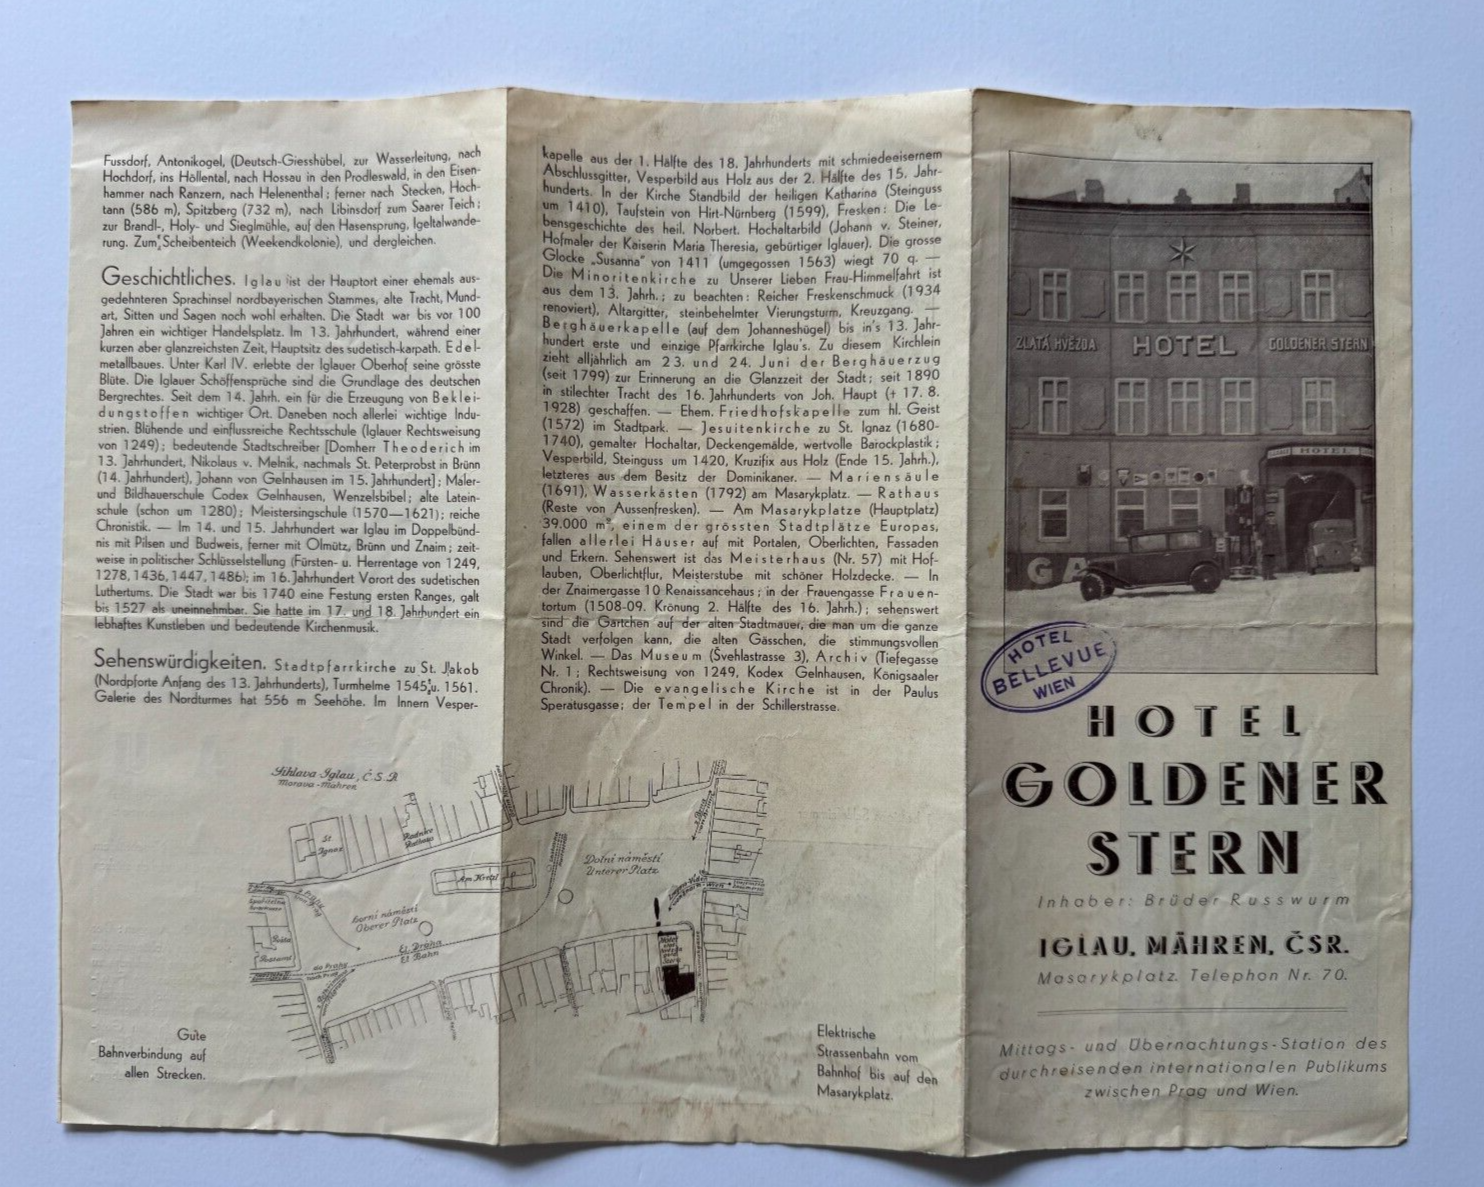 Fussdorf, Antonikogel, (Deutsch-Giesshübel, zur Wasserleitung, nach
Hochdorf, ins Höllental, nach Hossau in den Prodleswald, in den Eisen-
hammer nach Ranzern, nach Helenenthal; ferner nach Stecken, Hoch-
tann (586 m), Spitzberg (732 m), nach Libinsdorf zum Saarer Teich;
zur Brandl-, Holy- und Sieglmühle, auf den Hasensprung, Igeltalwande-
rung. Zum Scheibenteich (Weekendkolonie), und dergleichen.
Geschichtliches. Iglau ist der Hauptort einer ehemals aus-
gedehnteren Sprachinsel nordbayerischen Stammes, alte Tracht, Mund-
art, Sitten und Sagen noch wohl erhalten. Die Stadt war bis vor 100
Jahren ein wichtiger Handelsplatz. Im 13. Jahrhundert, während einer
kurzen aber glanzreichsten Zeit, Hauptsitz des sudetisch-karpath. Edel-
metallbaues. Unter Karl IV. erlebte der Iglauer Oberhof seine grösste
Blüte. Die Iglauer Schöffensprüche sind die Grundlage des deutschen
Bergrechtes. Seit dem 14. Jahrh. ein für die Erzeugung von Beklei-
dungstoffen wichtiger Ort. Daneben noch allerlei wichtige Indu-
strien. Blühende und einflussreiche Rechtsschule (Iglauer Rechtsweisung
von 1249); bedeutende Stadtschreiber [Domherr Theoderich im
13. Jahrhundert, Nikolaus v. Melnik, nachmals St. Peterprobst in Brünn
(14. Jahrhundert), Johann von Gelnhausen im 15. Jahrhundert]; Maler-
und Bildhauerschule Codex Gelnhausen, Wenzelsbibel; alte Latein-
schule (schon um 1280); Meistersingschule (1570—1621); reiche
Chronistik. — Im 14. und 15. Jahrhundert war Iglau im Doppelbünd-
nis mit Pilsen und Budweis, ferner mit Olmütz, Brünn und Znaim; zeit-
weise in politischer Schlüsselstellung (Fürsten- u. Herrentage von 1249,
1278, 1436, 1447, 1486); im 16. Jahrhundert Vorort des sudetischen
Luthertums. Die Stadt war bis 1740 eine Festung ersten Ranges, galt
bis 1527 als uneinnehmbar. Sie hatte im 17. und 18. Jahrhundert ein
lebhaftes Kunstleben und bedeutende Kirchenmusik.
Sehenswürdigkeiten. Stadtpfarrkirche zu St. Jakob
(Nordpforte Anfang des 13. Jahrhunderts), Turmhelme 1545 u. 1561.
Galerie des Nordturmes hat 556 m Seehöhe. Im Innern Vesper-
kapelle aus der 1. Hälfte des 18. Jahrhunderts mit schmiedeeisernem
Abschlussgitter, Vesperbild aus Holz aus der 2. Hälfte des 15. Jahr-
hunderts. In der Kirche Standbild der heiligen Katharina (Steinguss
um 1410), Taufstein von Hirt-Nürnberg (1599), Fresken: Die Le-
bensgeschichte des heil. Norbert. Hochaltarbild (Johann v. Steiner,
Hofmaler der Kaiserin Maria Theresia, gebürtiger Iglauer). Die grosse
Glocke „Susanna" von 1411 (umgegossen 1563) wiegt 70 q. —
Die Minoritenkirche zu Unserer Lieben Frau-Himmelfahrt ist
aus dem 13. Jahrh.; zu beachten: Reicher Freskenschmuck (1934
renoviert), Altargitter, steinbehelmter Vierungsturm, Kreuzgang. —
Berghäuerkapelle (auf dem Johanneshügel) bis in's 13. Jahr-
hundert erste und einzige Pfarrkirche Iglau's. Zu diesem Kirchlein
zieht alljährlich am 23. und 24. Juni der Berghäuerzug
(seit 1799) zur Erinnerung an die Glanzzeit der Stadt; seit 1890
in stilechter Tracht des 16. Jahrhunderts von Joh. Haupt († 17. 8.
1928) geschaffen. — Ehem. Friedhofskapelle zum hl. Geist
(1572) im Stadtpark. — Jesuitenkirche zu St. Ignaz (1680-
1740), gemalter Hochaltar, Deckengemälde, wertvolle Barockplastik;
Vesperbild, Steinguss um 1420, Kruzifix aus Holz (Ende 15. Jahrh.),
letzteres aus dem Besitz der Dominikaner. — Mariensäule
(1691), Wasserkästen (1792) am Masarykplatz. — Rathaus
(Reste von Aussenfresken). — Am Masarykplatze (Hauptplatz)
39.000 m², einem der grössten Stadtplätze Europas,
fallen allerlei Häuser auf mit Portalen, Oberlichten, Fassaden
und Erkern. Sehenswert ist das Meisterhaus (Nr. 57) mit Hof-
lauben, Oberlichtflur, Meisterstube mit schöner Holzdecke. — In
der Znaimergasse 10 Renaissancehaus; in der Frauengasse Frauen-
tortum (1508-09. Krönung 2. Hälfte des 16. Jahrh.); sehenswert
sind die Gärtchen auf der alten Stadtmauer, die man um die ganze
Stadt verfolgen kann, die alten Gässchen, die stimmungsvollen
Winkel. — Das Museum (Švehlastrasse 3), Archiv (Tiefegasse
Nr. 1; Rechtsweisung von 1249, Kodex Gelnhausen, Königsaaler
Chronik). — Die evangelische Kirche ist in der Paulus
Speratusgasse; der Tempel in der Schillerstrasse.
Jihlava-Iglau, Č.S.R.
Morava-Mähren
St. Ignaz
Radnice
Rathaus
Am Kretzl
Dolní náměstí
Unterer Platz
Horní náměstí
Oberer Platz
El. Dráha
El. Bahn
do Prahy
Gute
Bahnverbindung auf
allen Strecken.
Elektrische
Strassenbahn vom
Bahnhof bis auf den
Masarykplatz.
ZLATÁ HVĚZDA
HOTEL
GOLDENER STERN
HOTEL
GA
HOTEL
BELLEVUE
WIEN
HOTEL
GOLDENER
STERN
Inhaber: Brüder Russwurm
IGLAU, MÄHREN, ČSR.
Masarykplatz. Telephon Nr. 70.
Mittags- und Übernachtungs-Station des
durchreisenden internationalen Publikums
zwischen Prag und Wien.